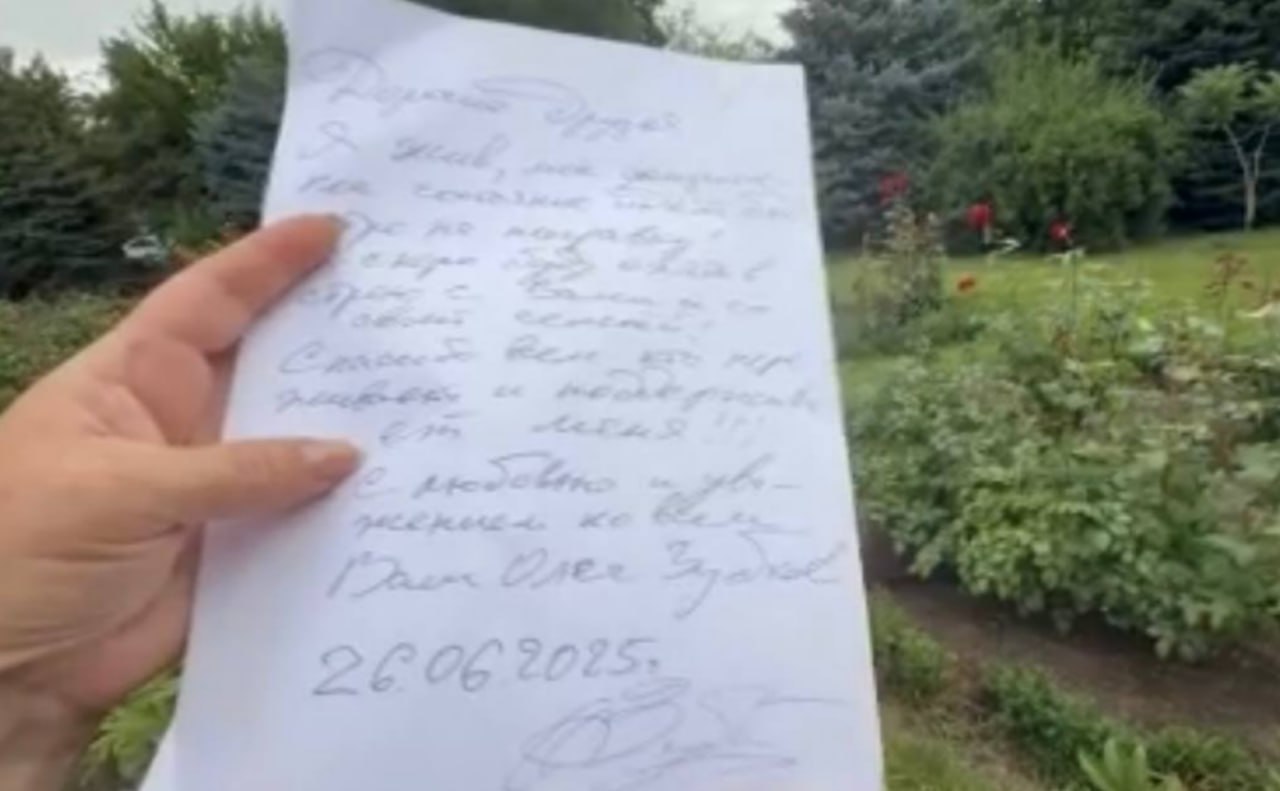 Дорогие Друзья
Я жив, мое
мое состояние
на поправку!
скоро буду опять в
строю с Вами и со
своей семьей!
Спасибо Всем кто пере
живает и поддержива
ет меня!!!
С любовью и ува-
жением ко Всем
Ваш Олег Зубков
26.06.2025.